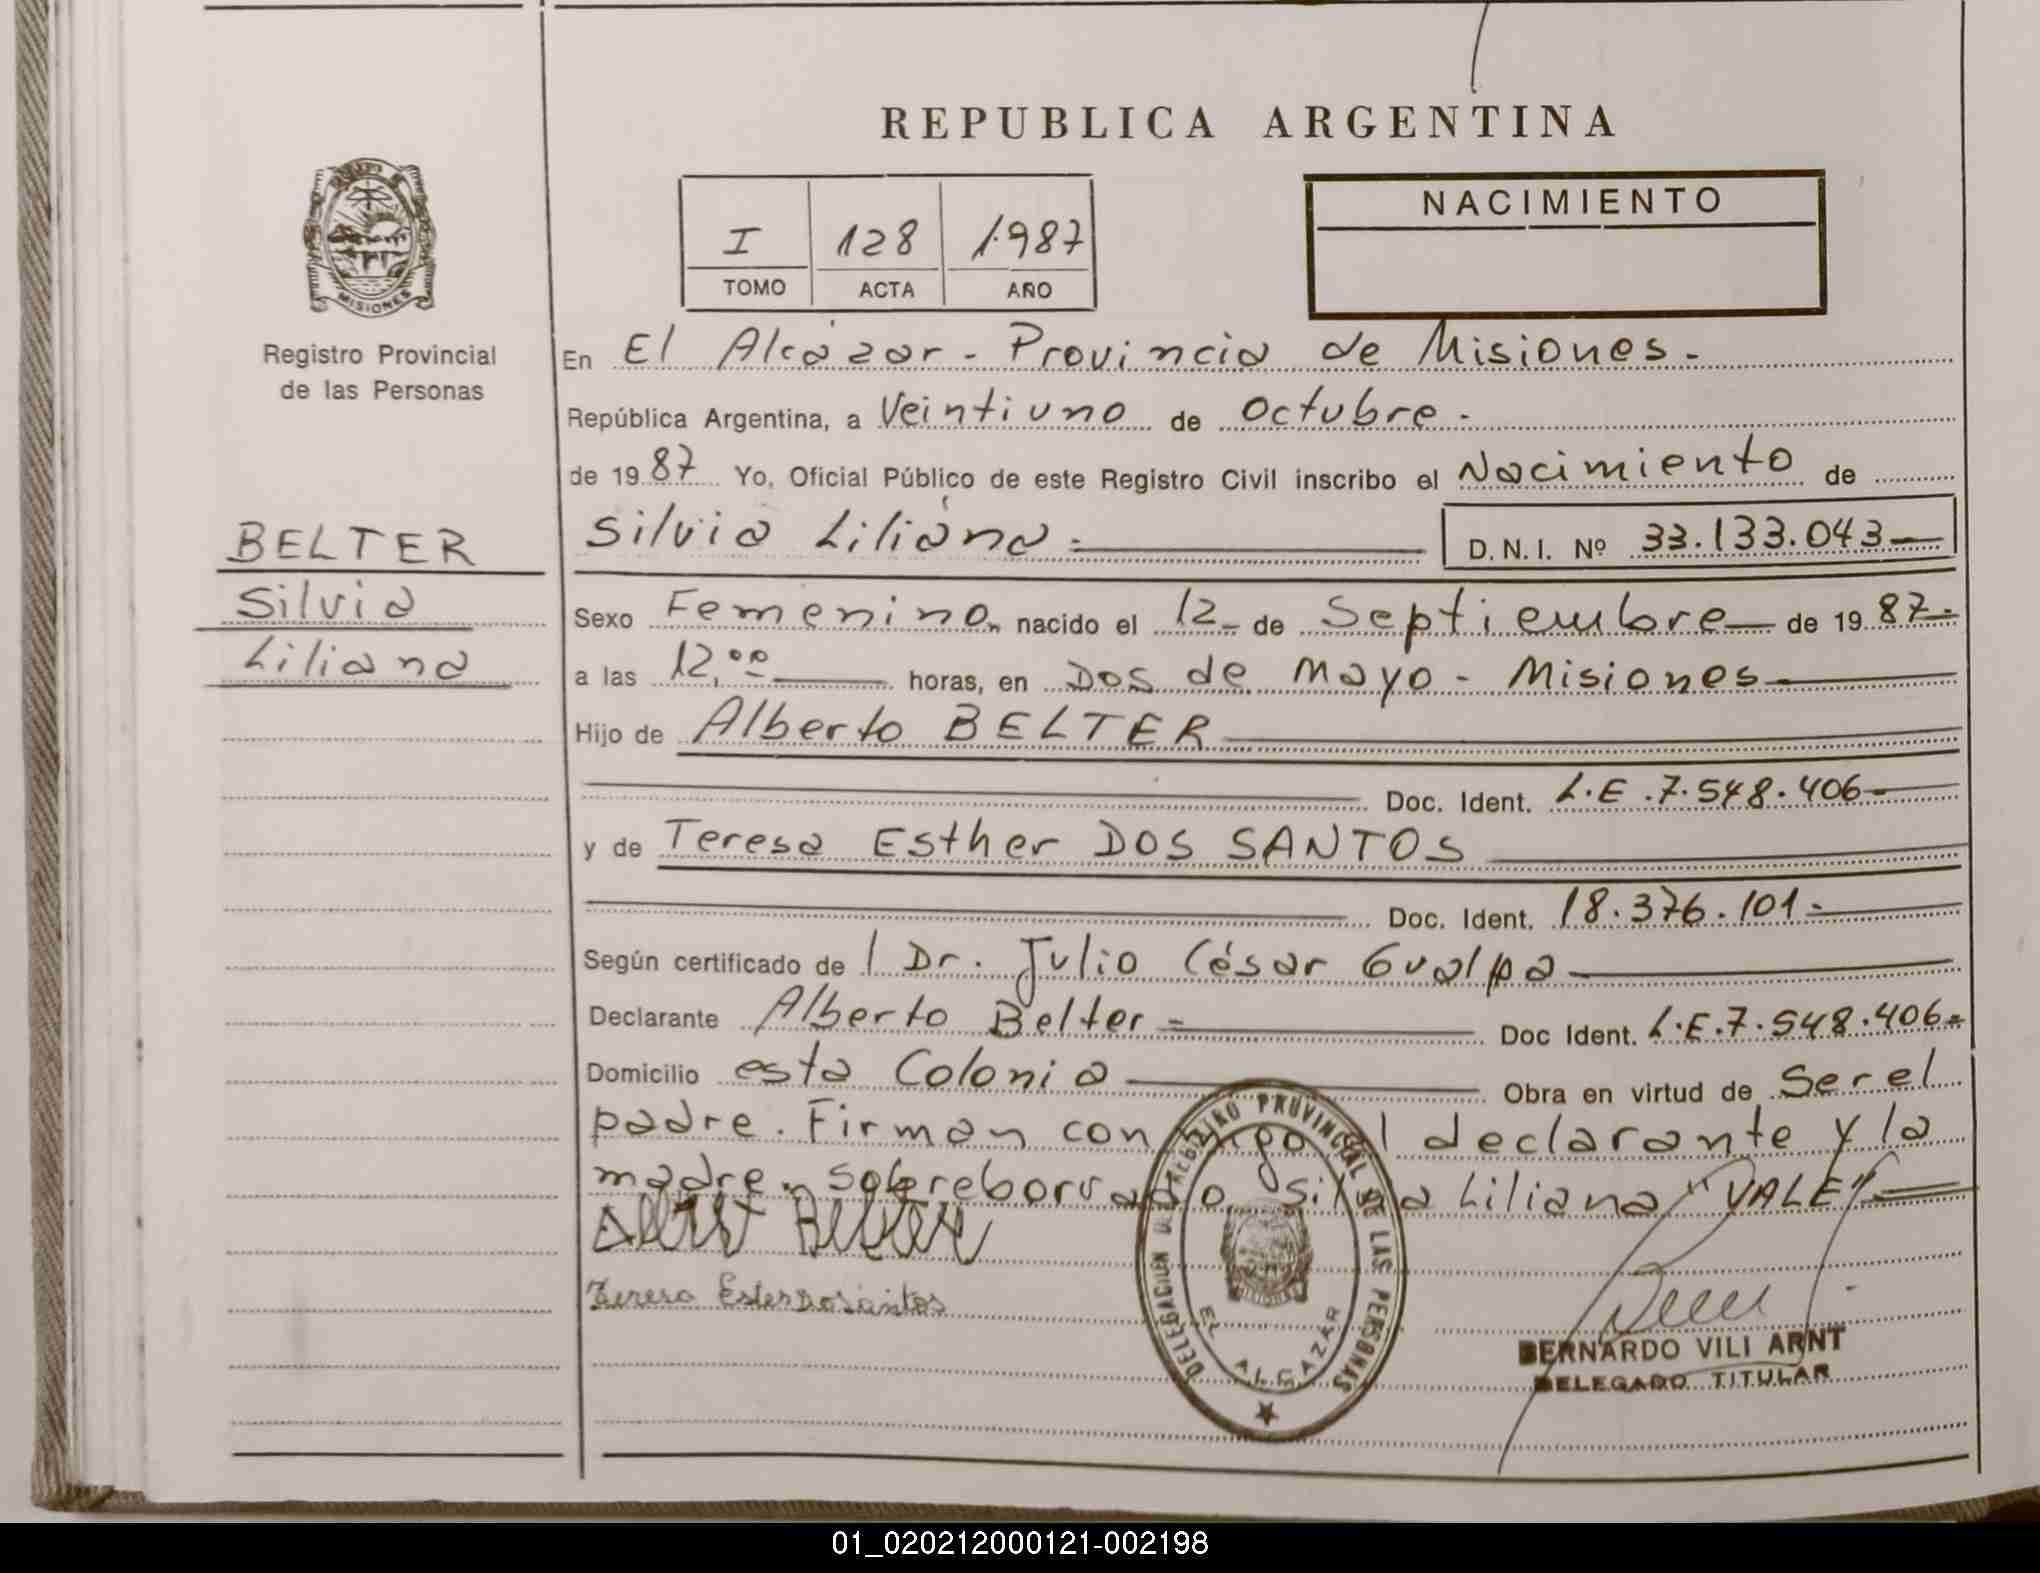 REPUBLICA ARGENTINA
MISIONES
Registro Provincial
de las Personas
I 128 1.987
TOMO ACTA AÑO
NACIMIENTO
En El Alcázar - Provincia de Misiones.-
República Argentina, a Veintiuno de Octubre.-
de 1987 Yo, Oficial Público de este Registro Civil inscribo el Nacimiento de
BELTER
Silvia
Liliana
Silvia Liliana.- D.N.I. Nº 33.133.043-
Sexo Femenino.- nacido el 12- de Septiembre- de 1987.-
a las 12,00 horas, en Dos de Mayo - Misiones-
Hijo de Alberto BELTER
Doc. Ident. L.E.7.548.406-
y de Teresa Esther DOS SANTOS
Doc. Ident. 18.376.101.-
Según certificado de l Dr. Julio César Gualpa
Declarante Alberto Belter.- Doc Ident. L.E.7.548.406-
Domicilio esta Colonia Obra en virtud de Ser el
padre. Firman conmigo el declarante y la
madre. Sobreborrado Silvia Liliana "VALE"
Teresa Ester Dosantos
DELEGACION REGISTRO PROVINCIAL DE LAS PERSONAS
EL ALCAZAR
BERNARDO VILI ARNT
DELEGADO TITULAR
01_020212000121-002198